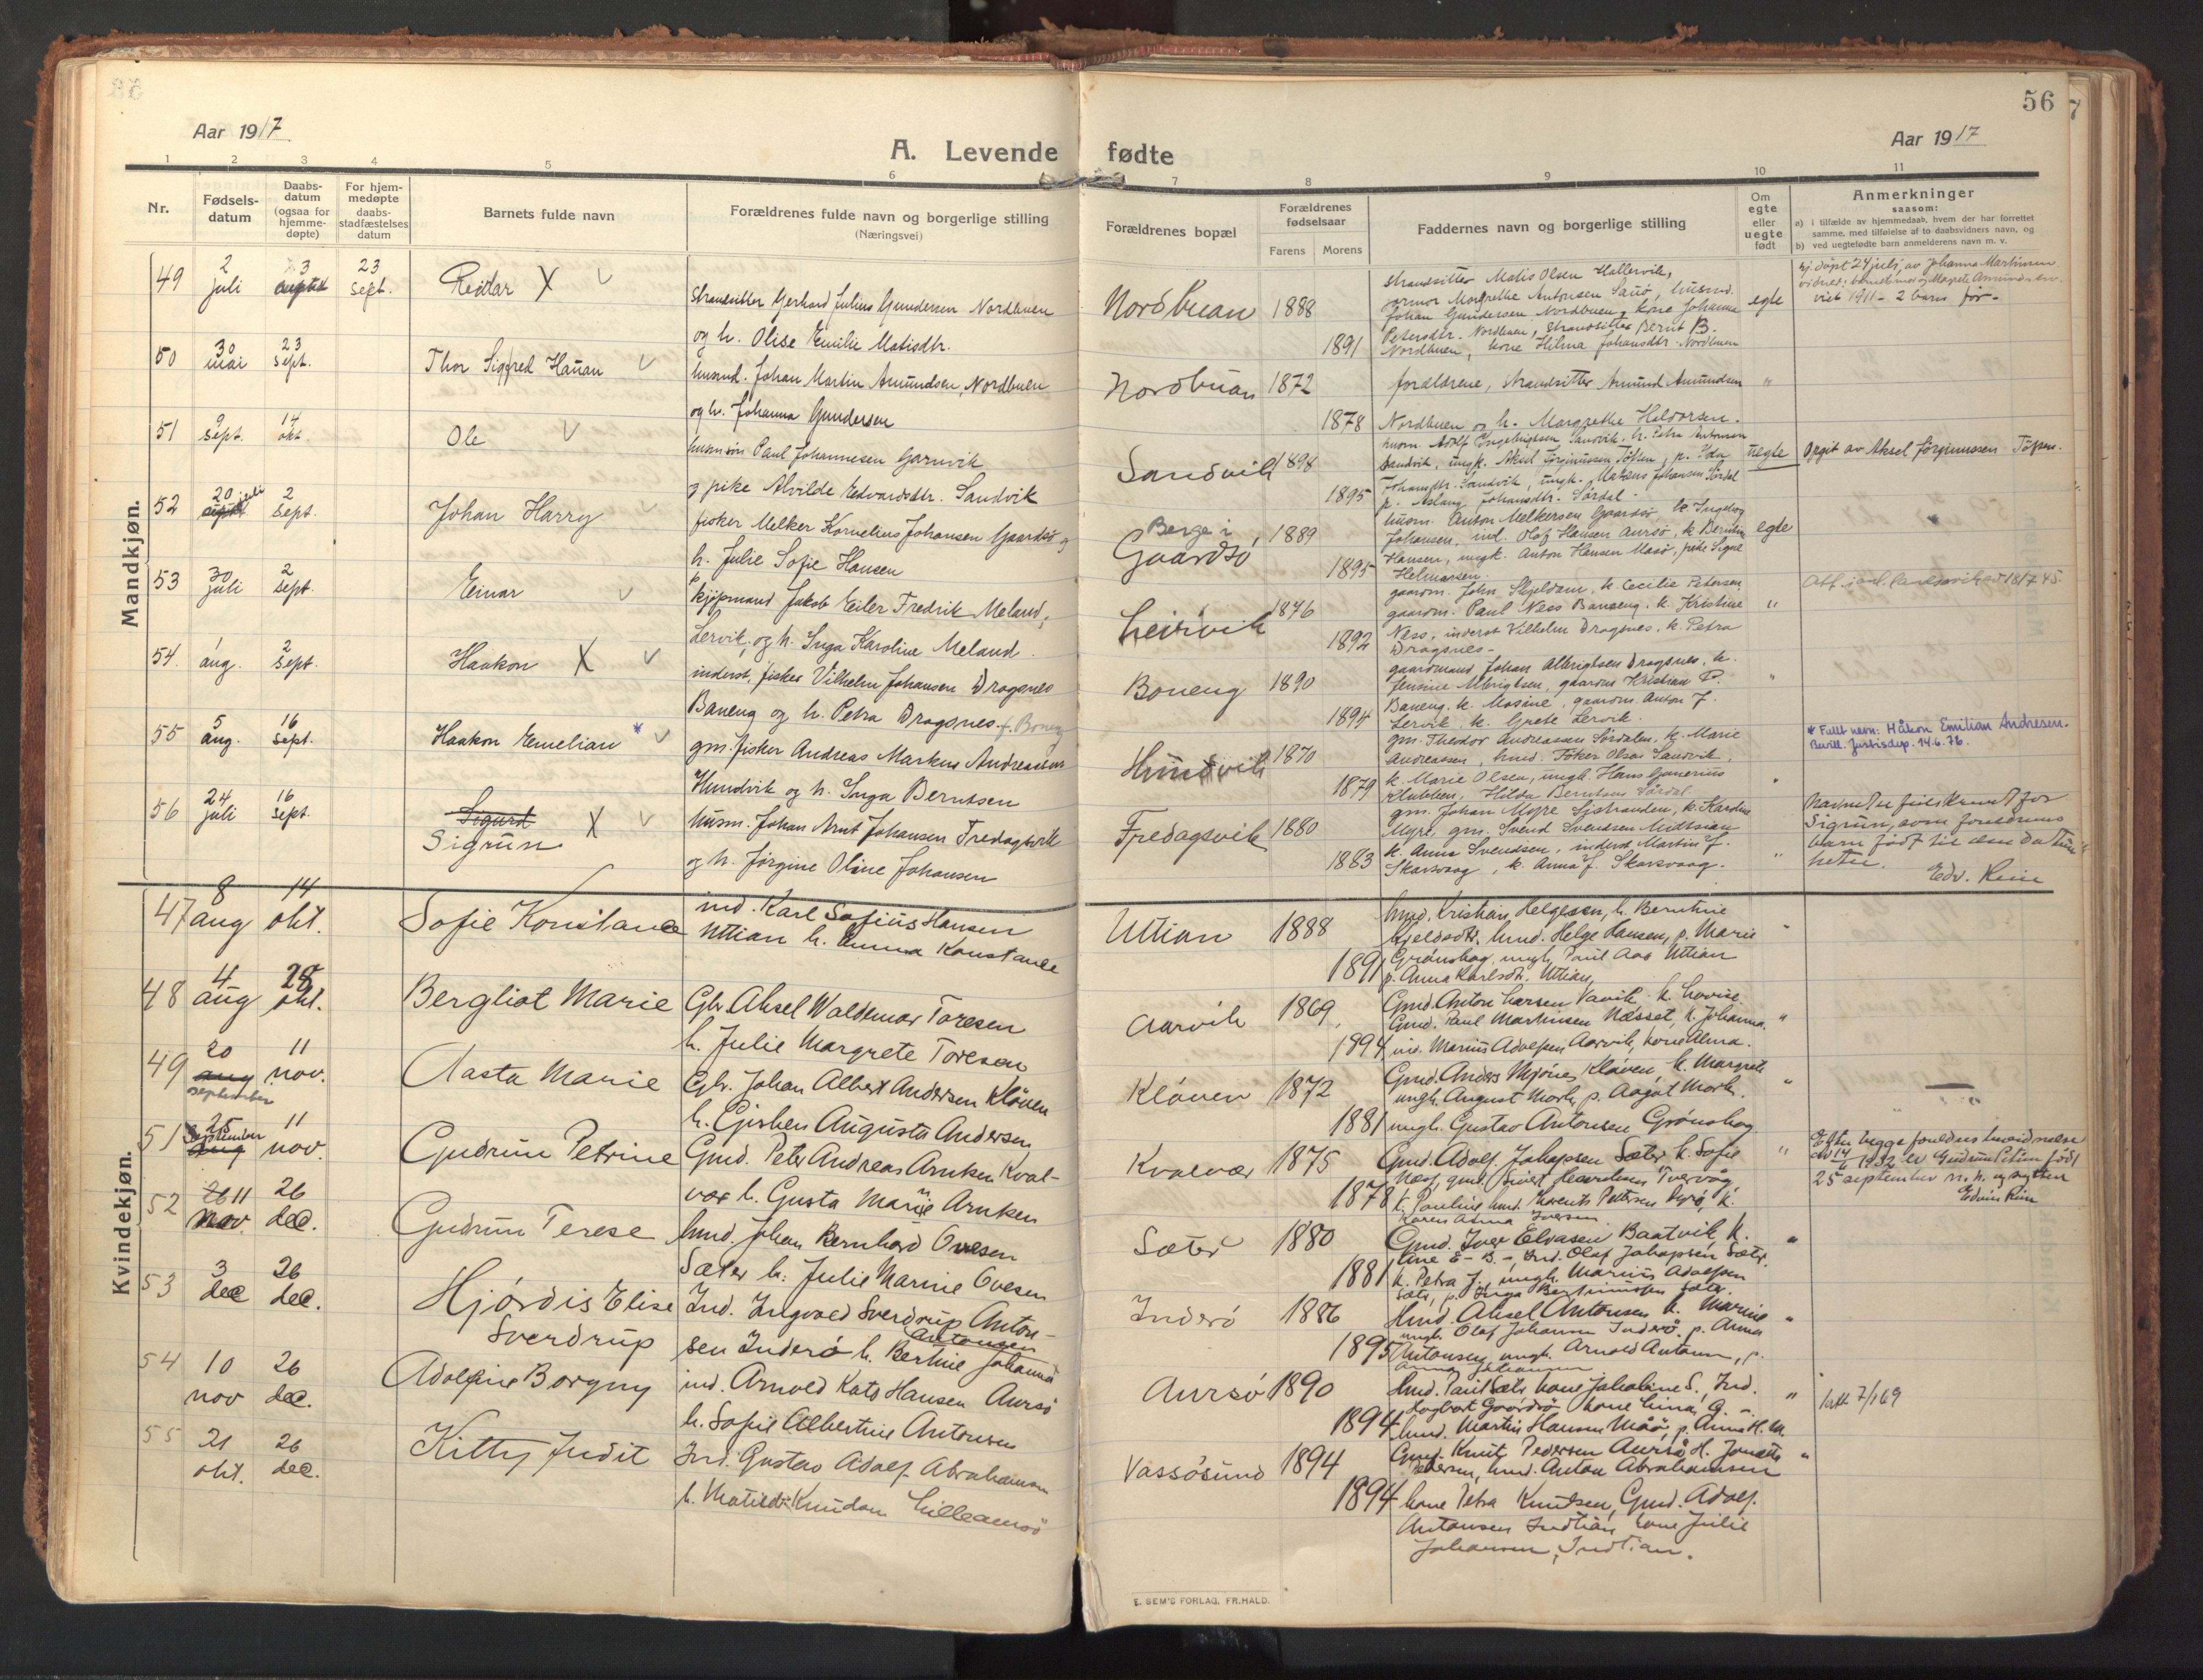 56
7
Aar 1917
A. Levende fødte
Aar 1917
1 2 3 4 5 6 7 8 9 10 11
Nr.
Fødsels-
datum
Daabs-
datum
(ogsaa for
hjemme-
døpte)
For hjem-
medøpte
daabs-
stadfæstelses
datum
Barnets fulde navn
Forældrenes fulde navn og borgerlige stilling
(Næringsvei)
Forældrenes bopæl
Forældrenes
fødselsaar
Farens Morens
Faddernes navn og borgerlige stilling
Om
egte
eller
uegte
født
Anmerkninger
saasom:
a) i tilfælde av hjemmedaab, hvem der har forrettet
samme, med tilføielse af to daabsvidners navn, og
b) ved uegtefødte barn anmelderens navn m. v.
Mandkjøn.
49 2 juli 3 23 sept. Reidar X
strandsitter Gerhard Julius Gundersen Nordbuen
og h. Olise Emilie Matisdtr.
Nordbuan 1888 1891
strandsitter Matis Olsen Hallervik,
Johan Gundersen Nordbuen, kone Johanna
Petersdtr. Nordbuen, strandsitter Bernt B.
Nordbuen, kone Hilma Johansdtr. Nordbuen
egte
hj. døpt 24 juli av Johanna Martinsen
viet 1911 - 2 barn før -
50 30 mai 23 sept. Thor Sigfred Hauan
husmd. Johan Martin Amundsen, Nordbuen
og h. Johanna Gundersen
Nordbuan 1872 1878
forældrene, strandsitter Amund Amundsen
Nordbuen og h. Margrethe Heldorsen.
"
51 9 sept. 14 okt. Ole
Paul Johannesen Garnvik
og pike Alvilde Edvardsdtr. Sandvik
Sandvik 1898 1895
husm. Adolf Ingebrigtsen Sandvik, h. Petra Antonsen
Sandvik, ungk. Aksel Jørginussen Töfsen, p. Ida
Johansdtr. Sandvik, ungk. Matæus Johansen Sördal
p. Aslaug Johansdtr. Sördal -
uegte
Opgit av Aksel Jørginussen Töfsen.
52 20 juli 2 sept. Johan Harry
fisker Melker Kornelius Johansen Gaardsø og
h. Julie Sofie Hansen
Berge i
Gaardsø 1889 1895
husm. Anton Melkersen Gaardsø k. Ingeborg
Johansen, ind. Olaf Hansen Aursø, k. Berntine
Hansen, ungk. Anton Hansen Masø, pike Signe
Helmersen.
egte
53 30 juli 2 sept. Einar
kjøpmand Jakob Eiler Fredrik Meland,
Lervik, og h. Inga Karoline Meland.
Leirvik 1876 1892
gaardm. John Skjeldam, k. Cecilie Petersen
gaardm. Paul Næss Baneng, k. Kristine
Næss, inderst Vilhelm Dragsnes, k. Petra
Dragsnes -
"
54. 1 aug. 2 sept. Haakon X
inderst, fisker Vilhelm Johansen Dragsnes
Baneng og h. Petra Dragsnes f. Boneng
Boneng 1890 1894
gaardmand Johan Albrigtsen Dragsnes, k.
Jensine Albrigtsen, gaardm Kristian P.
Baneng, k. Masine, gaardm. Anton J.
Lervik, k. Grete Lervik.
"
55 5 aug. 16 sept. Haakon Emelian *
gm. fisker Andreas Markus Andreassen
Hundvik og h. Inga Berntsen
Hundvik 1870 1879
gm. Theodor Andreassen Sördalen, k. Marie
Andreassen, hmd. Peter Olsen Sandvik,
k. Marie Olsen, ungk. Hans Gunerius
Klubben, Hilda Berntsen Sördal.
* Fullt navn: Håkon Emilian Andresen.
Bevill. Justisdep. 14.6.76.
56 24 juli 16 sept. Sigurd
Sigrun X
husm. Johan Arnt Johansen Fredagsvik
og h. Jørgine Oline Johansen
Fredagsvik 1880 1883
gm. Johan Myre Sjøstranden, k. Kardine
Myre, gm. Svend Svendsen Midtsian
k. Anna Svendsen, inderst Martin J.
Skarsvaag, k. Anna J. Skarsvaag.
"
Navnet er feilskrevet for
Sigrun, som foreldrenes
barn født til den datum
heter.
Edv. Rein
Kvindekjøn.
47 8 aug 14 okt. Sofie Konstance
ind. Karl Sofius Hansen
Uttian h. Anna Konstance
Uttian 1888 1891
hmd. Kristian Helgesen, h. Berntine
Kjeldsdtr, hmd. Helge Hansen, p. Marie
Grønskag, ungk. Paul Aas Uttian
p. Anna Karlsdtr. Uttian,
"
48 4 aug 28 okt. Bergliot Marie
Gbr. Aksel Waldemar Toresen
h. Julie Margrete Toresen
Aarvik 1869 1894
Gmd. Anton Larsen Vavik, k. Lovise.
Gmd. Paul Martinsen Næsset, k. Johanna.
ind. Marius Adolfsen Aarvik, kone Alma.
"
49 20 aug september 11 nov. Aasta Marie
Gbr. Johan Albert Andersen Kløven
h. Gjerken Augusta Andersen
Kløven 1872 1881
Gmd. Anders Mjönes Kløven, k. Margrete
ungk. August Mork, p. Aagot Mork.
ungk. Gustav Antonsen Grönskag
"
51 25 september aug 11 nov. Gudrun Petrine
Gmd. Peter Andreas Arnken Kval-
vær h. Gusta Marie Arnken
Kvalvær 1875 1878
Gmd. Adolf Johansen Sæter k. Sofie
Næss, gmd. Sivert Tvervåg,
k. Pauline hmd. Laurits Pettersen Dyrö, k.
Karen Anna Iversen.
"
Efter begge foreldres
av 14/6 1932 er Gudrun Petrine født
25 september
Edvin Rein
52 26 11 nov. 26 dec. Gudrun Terese
hmd. Johan Bernhard Ovesen
Sæter h. Julie Marine Ovesen
Sæter 1880 1881
Gmd. Iver Elvasen Baatvik k.
Ane E- B-, Ind. Olaf Johansen Sæter.
k. Petra J., ungk. Marius Adolfsen
"
53 3 dec 26 dec. Hjørdis Elise
Sverdrup
Ind. Ingvald Sverdrup Anton-
sen Inderö h. Bertine Johanna Antonsen
Inderö 1886 1895
Hmd. Aksel Antonsen k. Marine
ungk. Olaf Johansen Inderö, p. Anna
Antonsen, ungk. Arnold Antonsen, p.
Anna Johansen
"
54 10 nov 26 dec. Adolfine Borgny
ind. Arnold Kato Hansen Aursö
h. Sofie Albertine Antonsen
Aursö 1890 1894
hmd. Paul Sætr kone Jakobine S., Ind.
Dagbart Gaardsö kone Lina G -
hmd. Martin Hansen Måö, p. Anna H. M.
"
7/169
55 21 okt. 26 dec. Kitty Judit
Ind. Gustav Adolf Abrahamsen
h. Matilde Knudsen Lilleaursö
Vassösund 1894 1894
Gmd. Knut Pedersen Aursö, H. Jonette
Pedersen, hmd. Anton Abrahamsen
kone Petra Knudsen, Gmd. Adolf
Antonsen Indtian, kone Julie
Johansen, Indtian.
"
E. SEM'S FORLAG, FR.HALD.